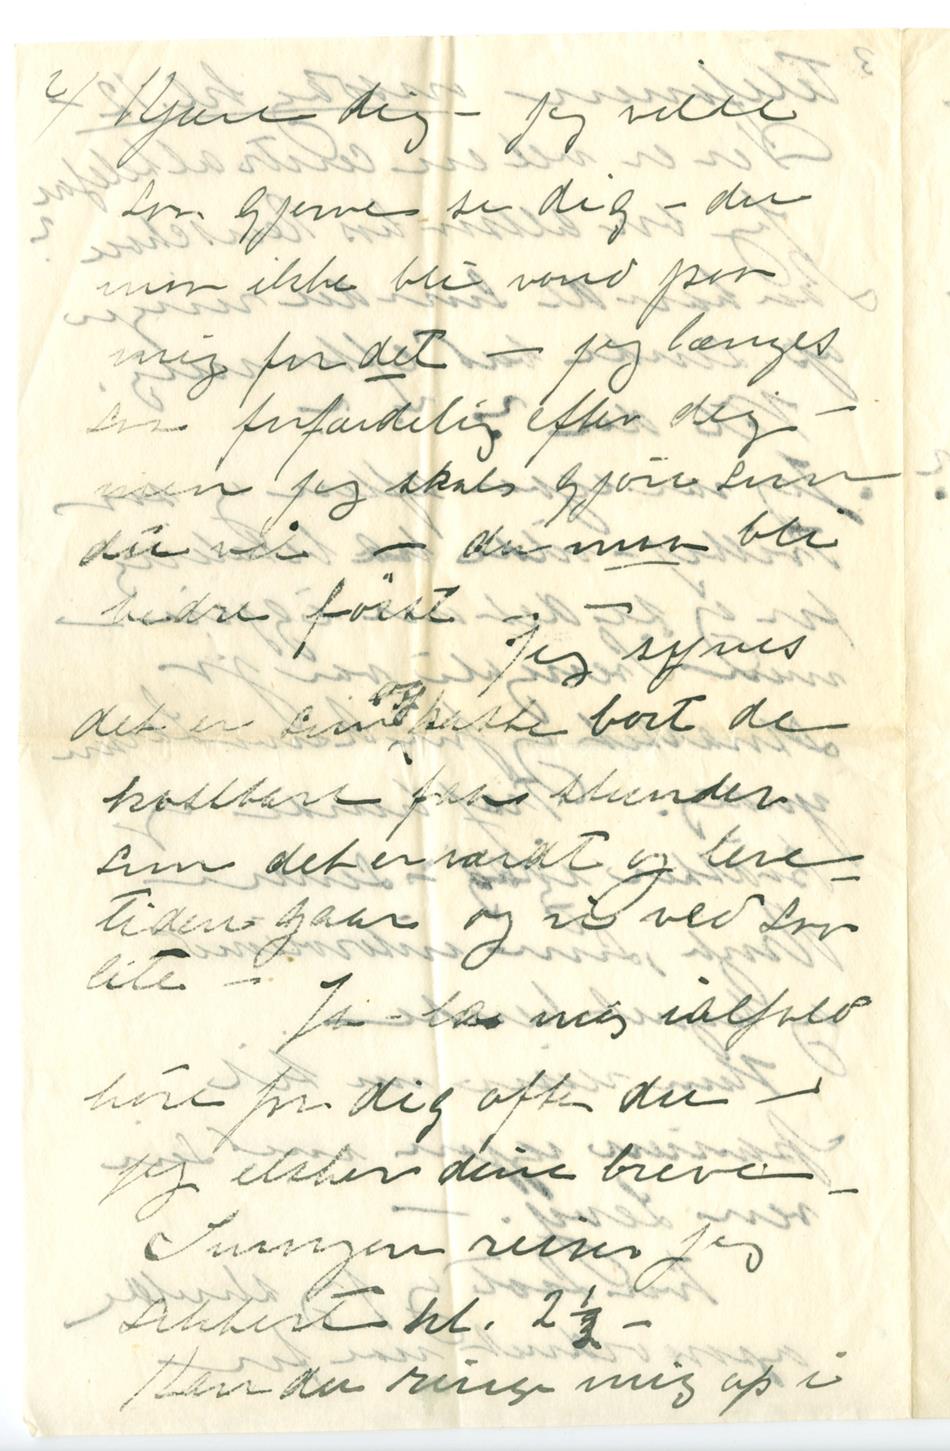 2/ Kjære dig – jeg vilde
saa gjerne se dig – du
maa ikke bli vond paa
mig for det – jeg længes
saa forfærdelig efter dig –
men jeg skal gjöre som
du vil – du maa bli
bedre först –
Jeg synes
det er synd og kaste bort de
kostbare faa stunder
som det er værdt og leve –
tiden gaar og vi ved saa
lite –
Ja – la mig ialfald
höre fra dig ofte du –
jeg elsker dine breve –
reiser jeg
sikkert kl. 2½ –
Kan du ringe mig op i